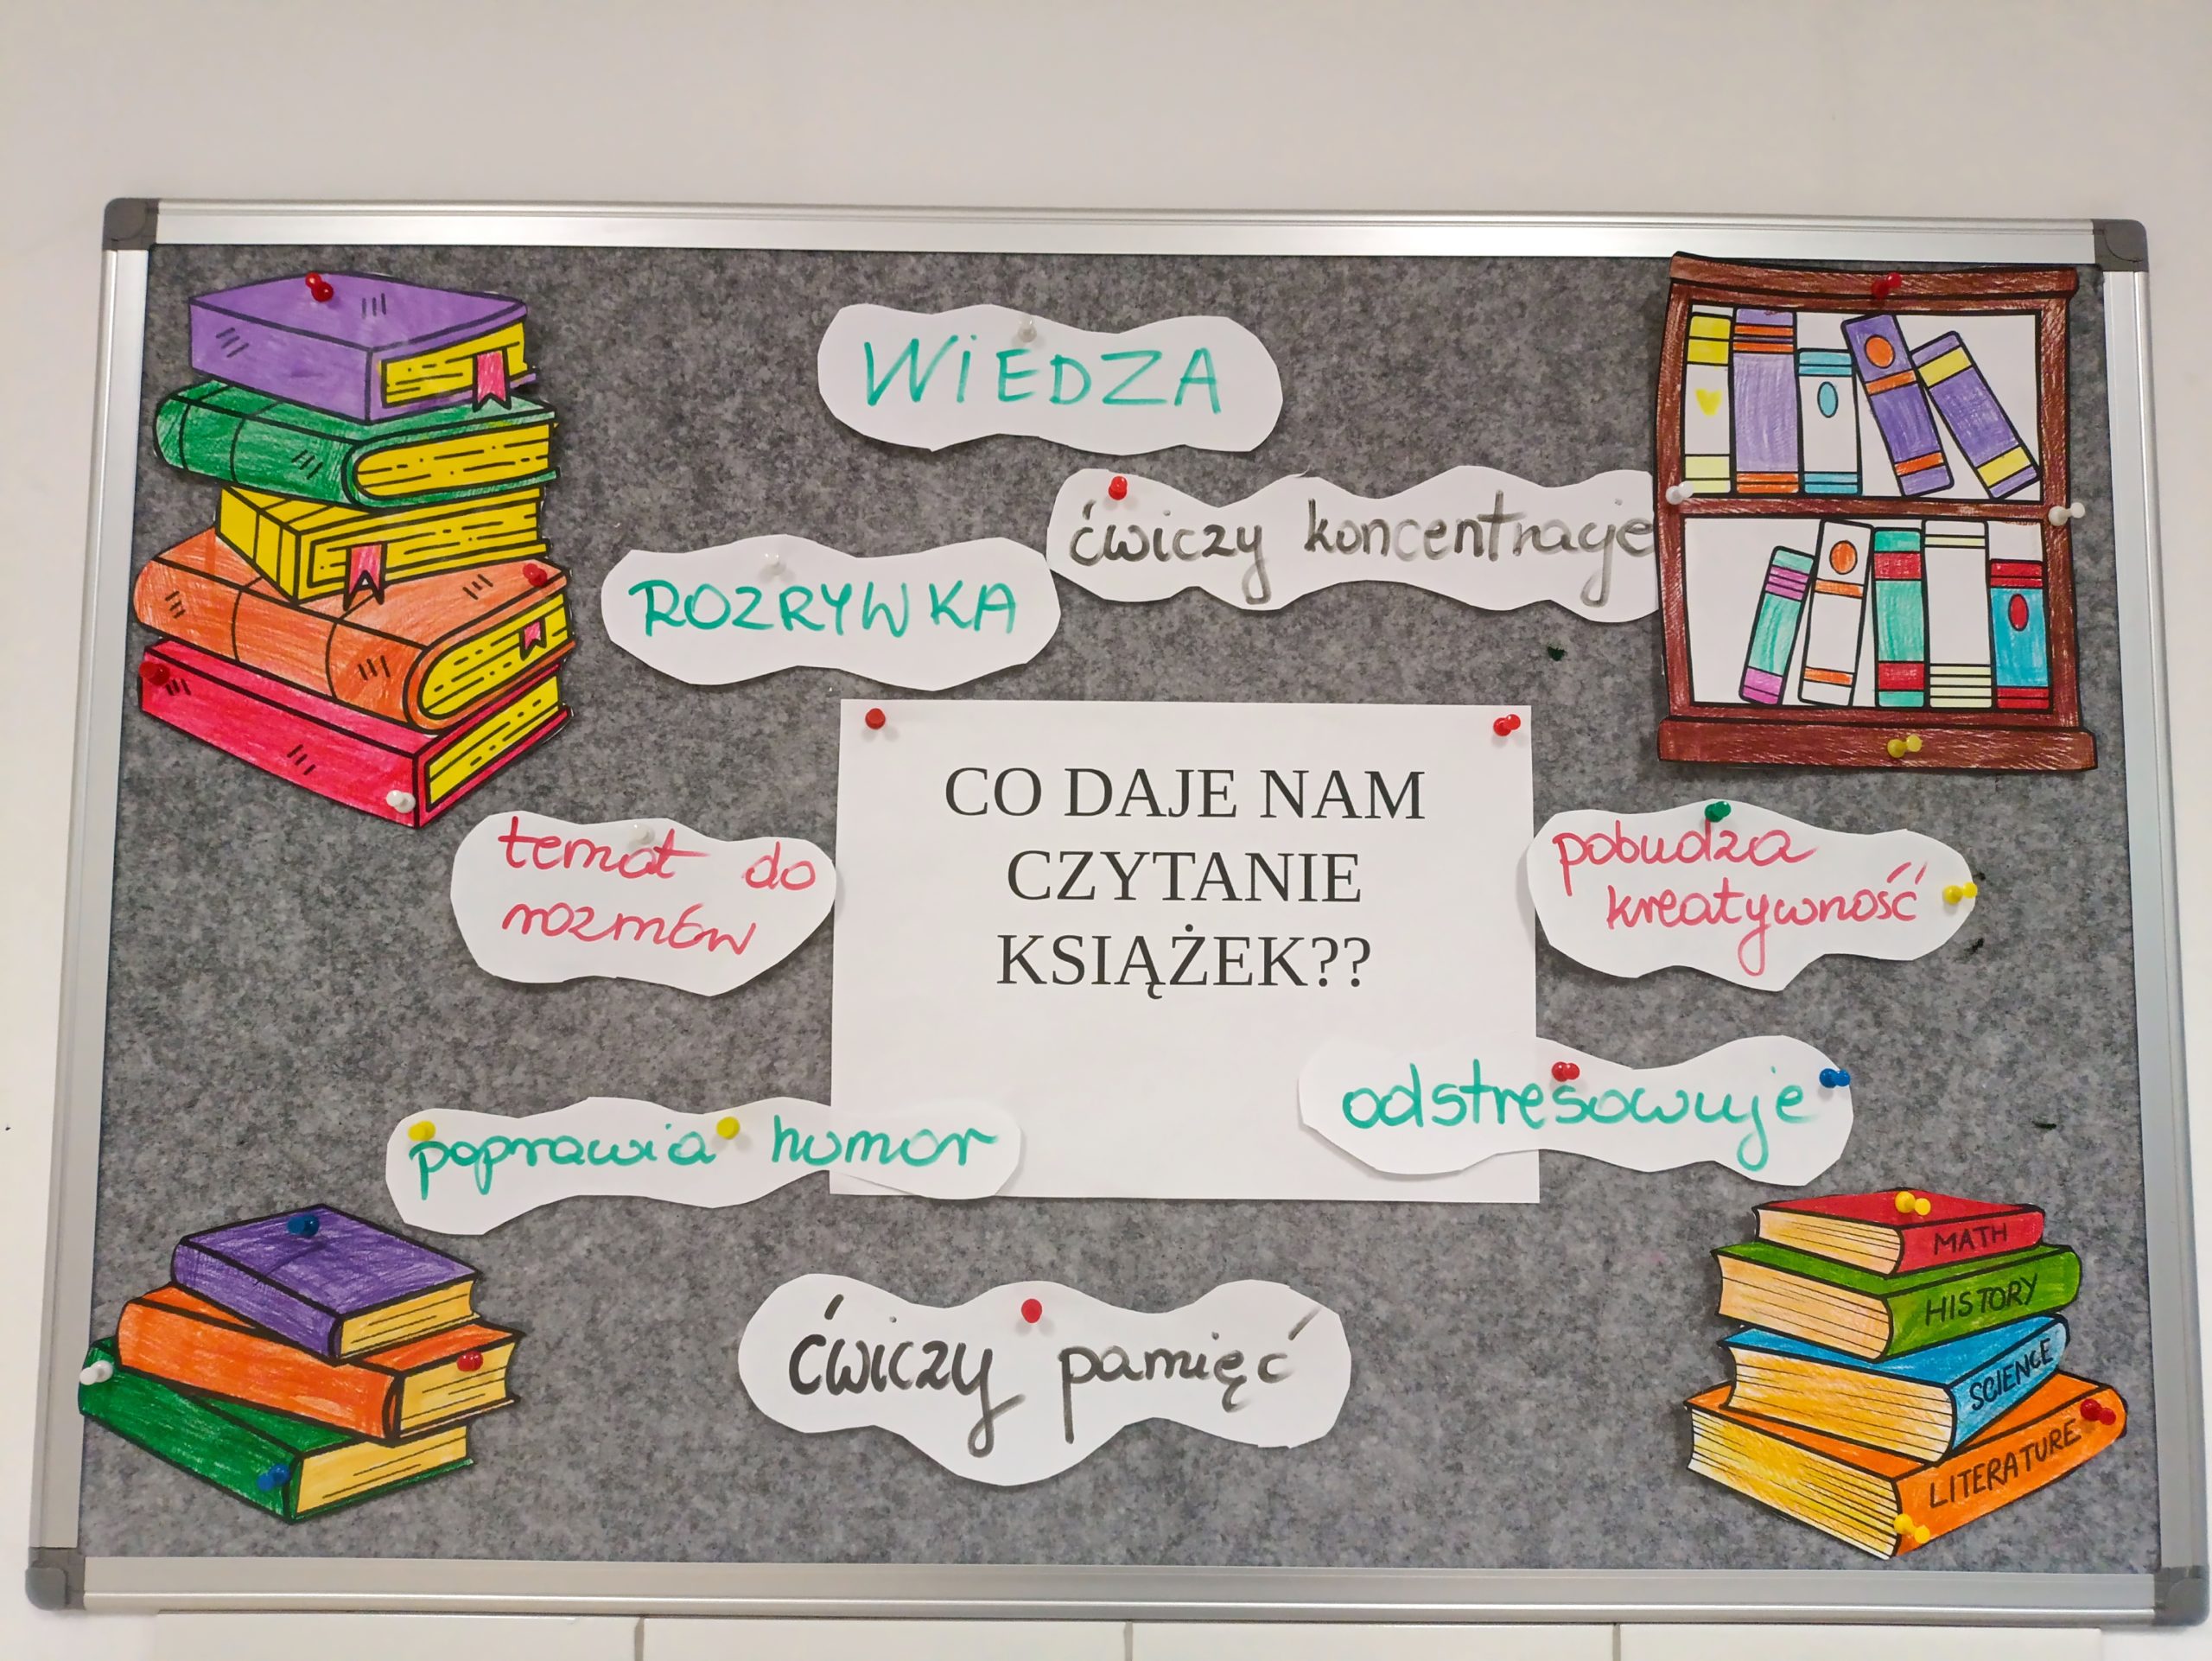 WiEDZA
ćwiczy koncentracje
ROZRYWKA
CO DAJE NAM
CZYTANIE
KSIĄŻEK??
temat do
rozmów
pobudza
kreatywność
odstresowuje
poprawia humor
ćwiczy pamięć
MATH
HISTORY
SCIENCE
LITERATURE